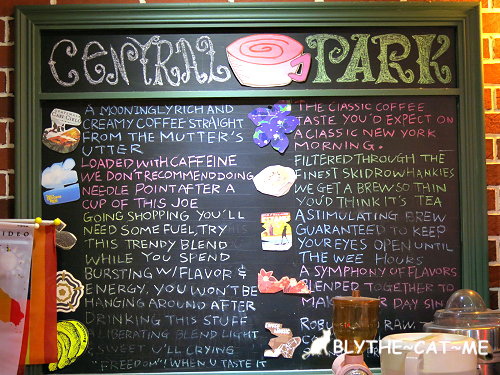 CENTRAL PARK
A MOONINGLY RICH AND
CREAMY COFFEE STRAIGHT
FROM THE MUTTER'S
UTTER
LOADED WITH CAFFEINE
WE DON'T RECOMMEND DOING
NEEDLE POINT AFTER A
CUP OF THIS JOE
GOING SHOPPING YOU'LL
NEED SOME FUEL, TRY
THIS TRENDY BLEND
WHILE YOU SPEND
BURSTING W/FLAVOR &
ENERGY, YOU WON'T BE
HANGING AROUND AFTER
DRINKING THIS STUFF
A LIBERATING BLEND LIGHT
& SWEET U'LL CRYING
"FREEDOM"! WHEN U TASTE IT
THE CLASSIC COFFEE
TASTE YOU'D EXPECT ON
A CLASSIC NEW YORK
MORNING.
FILTERED THROUGH THE
FINEST SKID ROW HANKIES
WE GET A BREW SO THIN
YOU'D THINK IT'S TEA
A STIMULATING BREW
GUARANTEED TO KEEP
YOUR EYES OPEN UNTIL
THE WEE HOURS
A SYMPHONY OF FLAVORS
BLENDED TOGETHER TO
DAY SIN
RAW
IDEO
BLYTHE~CAT~ME